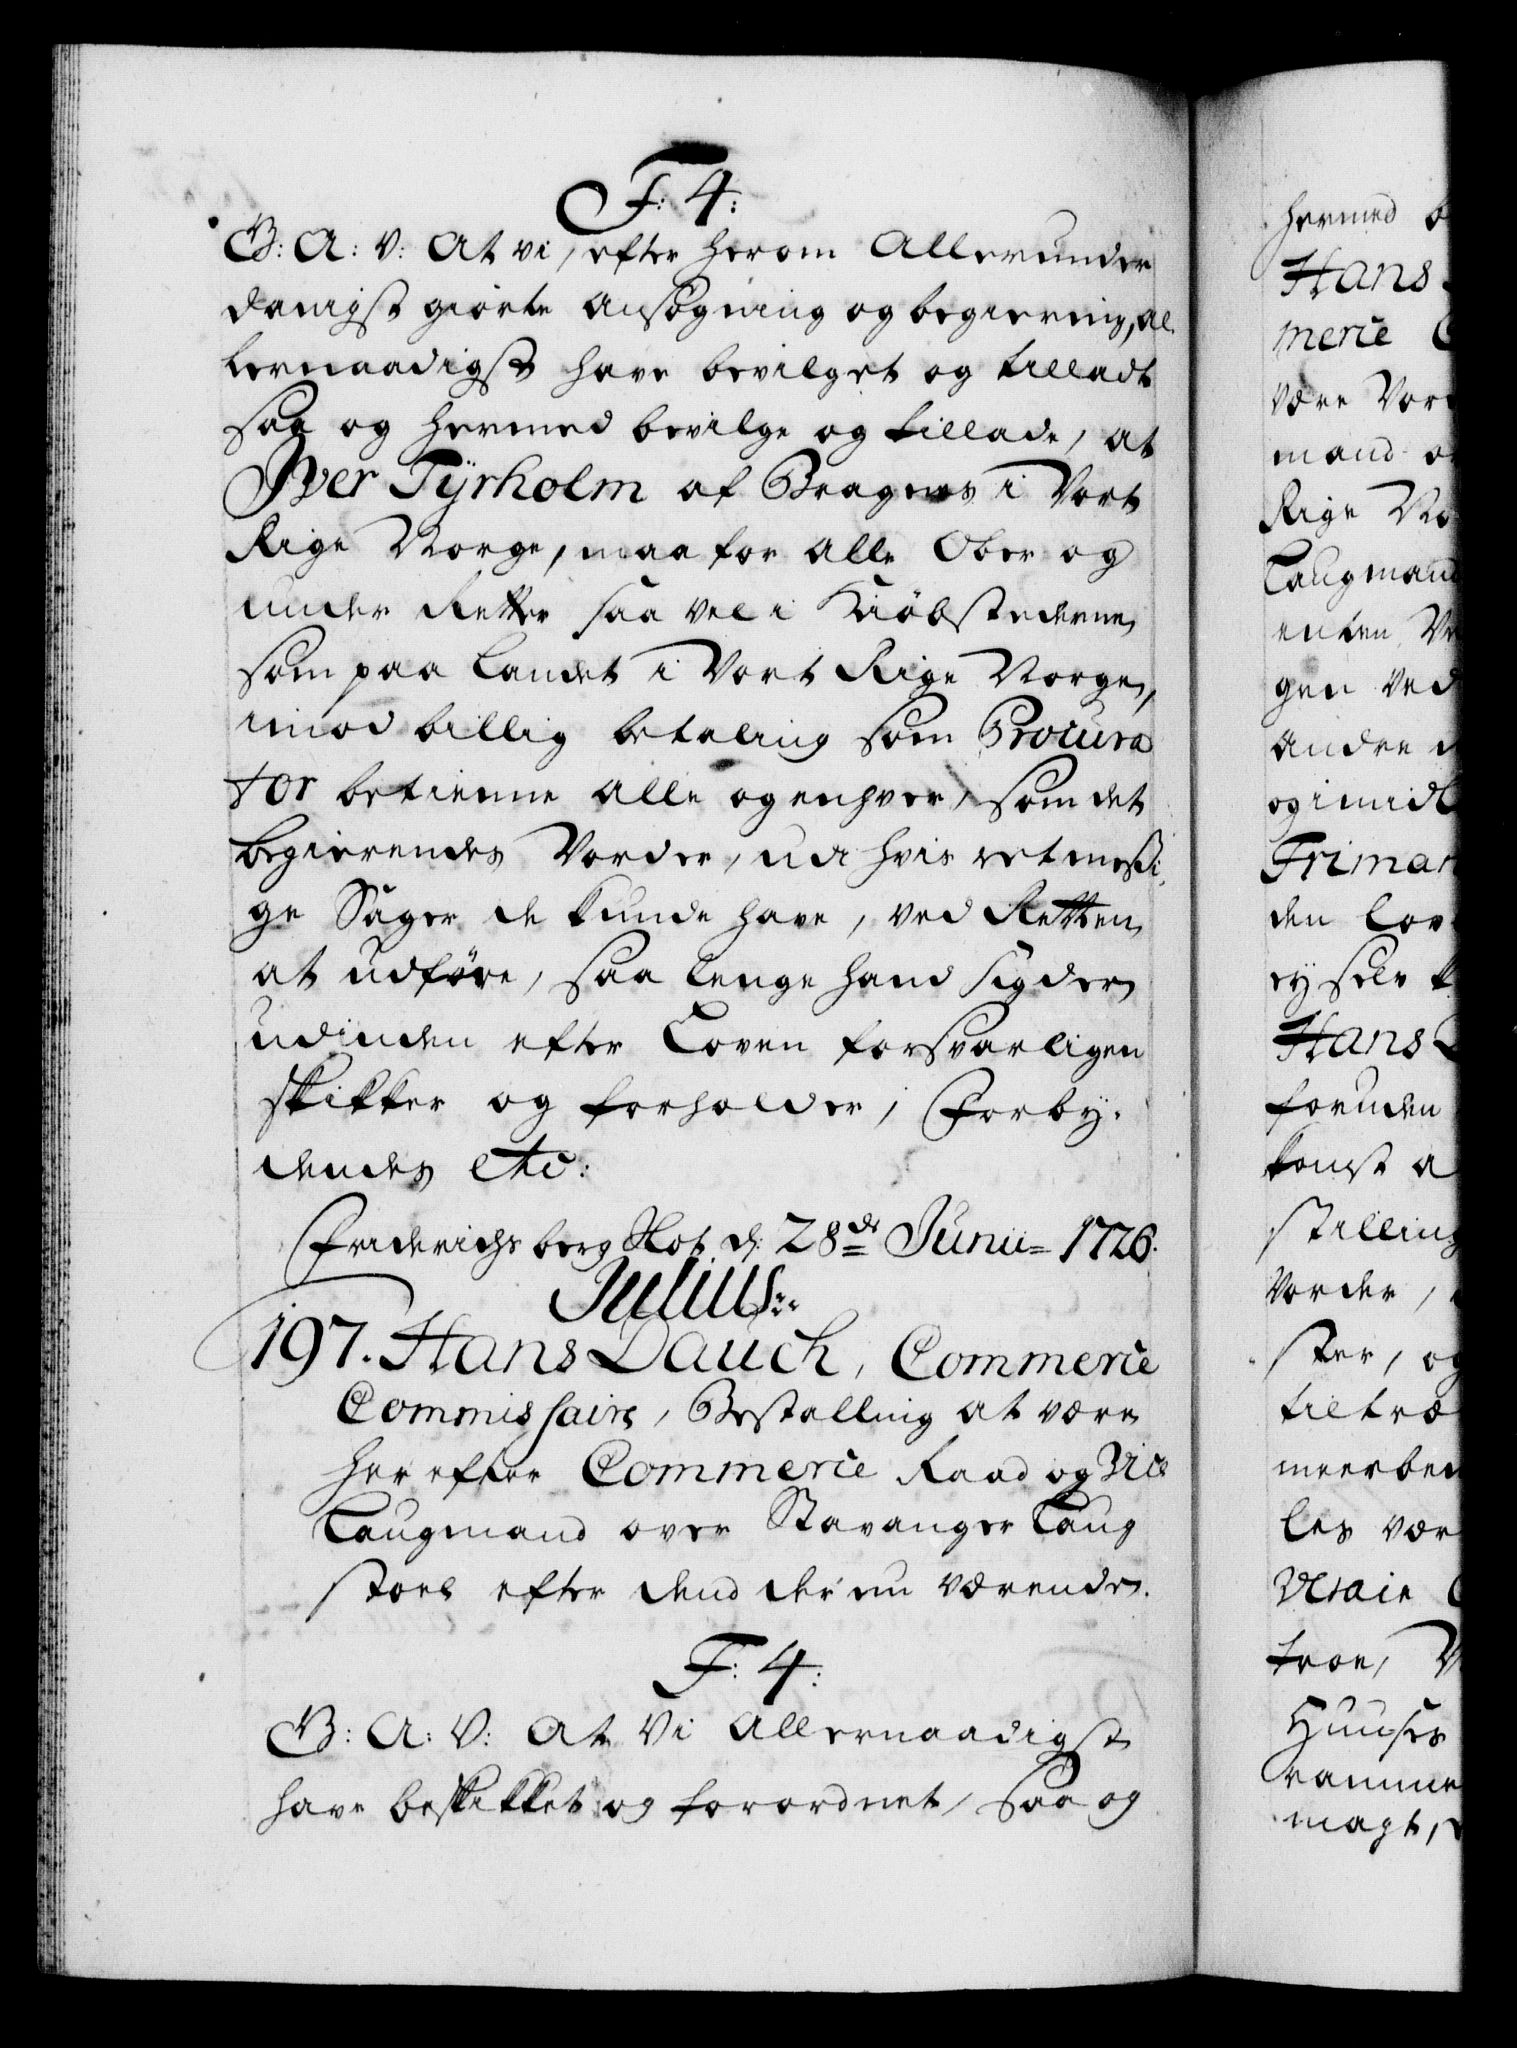 F: 4:
G: A: V: At vi, efter herom Allerunder
danigst giorte Ansøgning og begiering, Al,
lernaadigst have bevilget og tilladt
saa og hermed bevilge og tillade, at
Iver Tÿrholm af Bragnes i Vort
Rige Norge, maa for alle Ober og
under Retter saa vel i Kiøbstederne
som paa Landet i Vort Rige Norge,
imod billig betaling som Procura
tor betienne alle og enhver, som det
begierendes Vorder, udi hvis retmessi,
ge Sager de kunde have, ved Retten
at udføre, saa lenge hand sig der
udinden efter Loven forsvarligen
skikker og forholder, Forby,
dendes etc:
Friderichsberg Slot d: 28de Junii 1726.
Julius
197. Hans Dauch, Commerie
Commissair, Bestalling at være
her efter Commercie Raad og Vice
Laugmand over Stavanger Laug
stoel efter dend der nu værende.
F: 4:
G: A: V: At Vi Allernaadigst
have beskikket og forordnet, saa og
hermed
Hans
merie
være Vor
mand
Rige No
Laugmand
enten
gen ved
andre
og imidl
Friman
den lov
ey selv
Hans
foruden
komst a
stilling
Vorder,
ster, og
tiltræ
meerben
les vær
troe,
Huuses
ramme
magt,